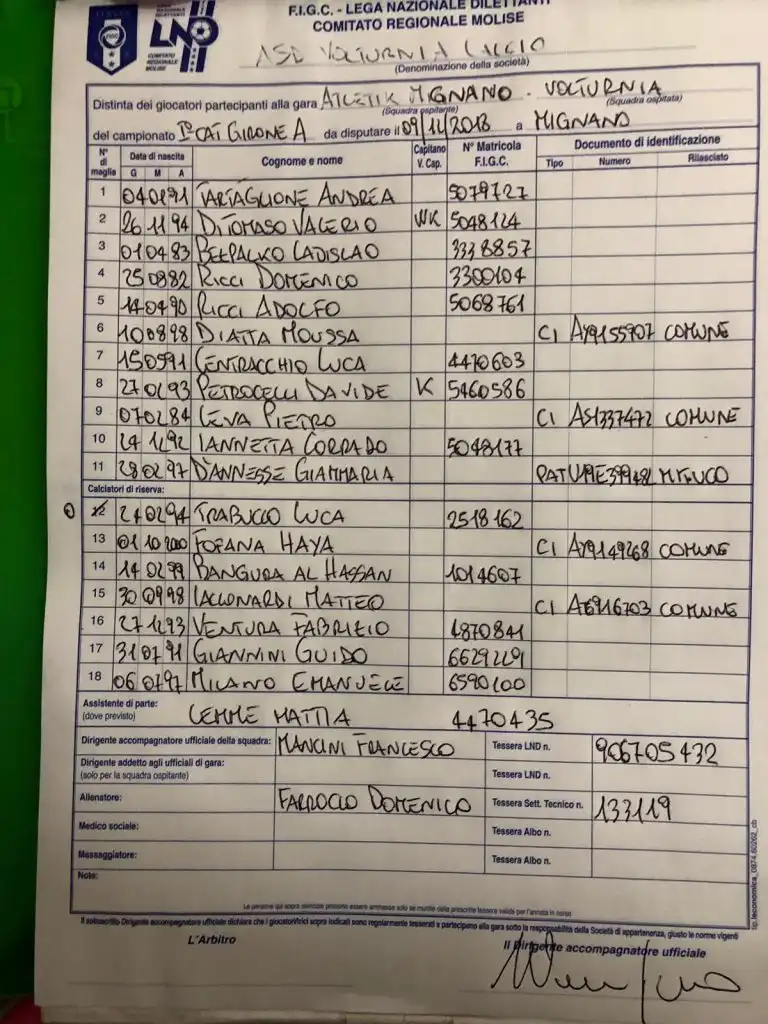 F.I.G.C. - LEGA NAZIONALE DILETTANTI
COMITATO REGIONALE MOLISE
LND
COMITATO
REGIONALE
MOLISE
ASD VOLTURNIA CALCIO
(Denominazione della società)
Distinta dei giocatori partecipanti alla gara ATLETIK MIGNANO - VOLTURNIA
(Squadra ospitante) (Squadra ospitata)
del campionato 1ª CAT GIRONE A da disputare il 09/12/2018 a MIGNANO
N° di maglia Data di nascita G M A Cognome e nome Capitano V. Cap. N° Matricola F.I.G.C. Documento di identificazione Tipo Numero Rilasciato
1 TARTAGLIONE ANDREA 5079727
2 26 11 94 DI TOMASO VALERIO VK 5048124
3 01 04 83 LADISLAO 3318857
4 25 08 82 RICCI DOMENICO 3300104
5 14 04 90 RICCI ADOLFO 5068761
6 10 08 98 DIATTA MOUSSA CI AY9155907 COMUNE
7 15 05 91 CENTRACCHIO LUCA 4470603
8 27 02 93 PETROCELLI DAVIDE K 5460586
9 07 02 84 LEVA PIETRO CI AS1337472 COMUNE
10 24 12 92 IANNETTA CORRADO 5048177
11 28 02 97 D'ANNESSE GIAMMARIA PAT
Calciatori di riserva:
12 24 02 94 TRABUCCO LUCA 2518162
13 01 10 2000 FOFANA HAYA CI AY9149268 COMUNE
14 14 02 99 BANGURA AL HASSAN 1014607
15 30 09 98 IACCONARDI MATTEO CI COMUNE
16 27 12 93 VENTURA FABRIZIO 4870841
17 31 07 91 GIANNINI GUIDO 6629229
18 06 07 97 MILANO EMANUELE 6590100
Assistente di parte:
(dove previsto) LEMME MATTIA 4470435
Dirigente accompagnatore ufficiale della squadra: MANCINI FRANCESCO Tessera LND n. 906705432
Dirigente addetto agli ufficiali di gara:
(solo per la squadra ospitante) Tessera LND n.
Allenatore: FARROCCO DOMENICO Tessera Sett. Tecnico n. 133119
Medico sociale: Tessera Albo n.
Massaggiatore: Tessera Albo n.
Note:
Le persone qui sopra elencate possono essere ammesse solo se munite della prescritta tessera valida per l'annata in corso
Il sottoscritto Dirigente accompagnatore ufficiale dichiara che i giocatori/trici sopra indicati sono regolarmente tesserati e partecipano alla gara sotto la responsabilità della Società di appartenenza, giusto le norme vigenti
L'Arbitro Il Dirigente accompagnatore ufficiale